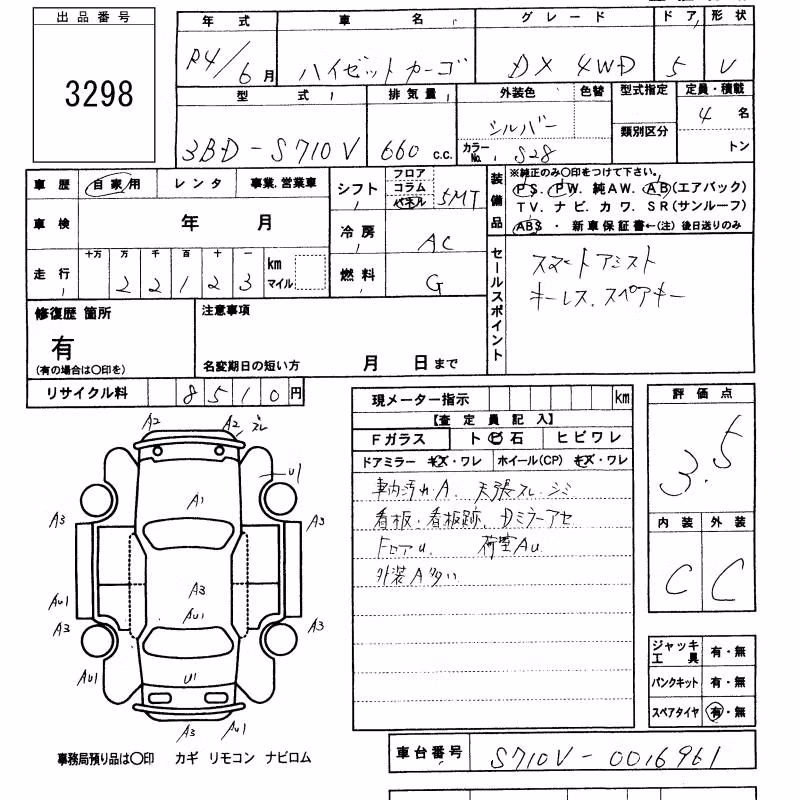 出品番号
3298
年式 車名 グレード ドア 形状
R4/6月 ハイゼットカーゴ DX 4WD 5 V
型式 排気量 外装色 色替 型式指定 定員・積載
3BD-S710V 660 c.c. シルバー カラーNo. S28 類別区分 4名
トン
車歴 自家用 レンタ 事業.営業車
車検 年 月
走行 十万 万 千 百 十 一 km マイル
2 2 1 2 3
シフト フロア コラム パネル 5MT
冷房 AC
燃料 G
装備品
※純正のみ〇印をつけて下さい。
PS. PW. 純AW. AB(エアバック)
TV. ナビ. カワ. SR(サンルーフ)
ABS ・ 新車保証書←(注) 後日送りのみ
セールスポイント
スマートアシスト
キーレス. スペアキー
修復歴 箇所
有
(有の場合は〇印を)
注意事項
名変期日の短い方 月 日まで
リサイクル料 8510円
現メーター指示 km
【査定員記入】
Fガラス ト ビ 石 ヒビワレ
ドアミラー キズ・ワレ ホイール(CP) キズ・ワレ
車内汚れ・A. 天張スレ・シミ
看板・看板跡. Dミラーアセ
フロアu. 荷室Au
外装A多い
評価点
3.5
内装 外装
C C
ジャッキ 工具 有・無
パンクキット 有・無
スペアタイヤ 有・無
A2 A2 スレ
A1 U1
A3 A3
A3
AU1 AU1
A3 A3
AU1 U1
A3 AU1
事務局預り品は〇印 カギ リモコン ナビロム
車台番号 S710V-0016961